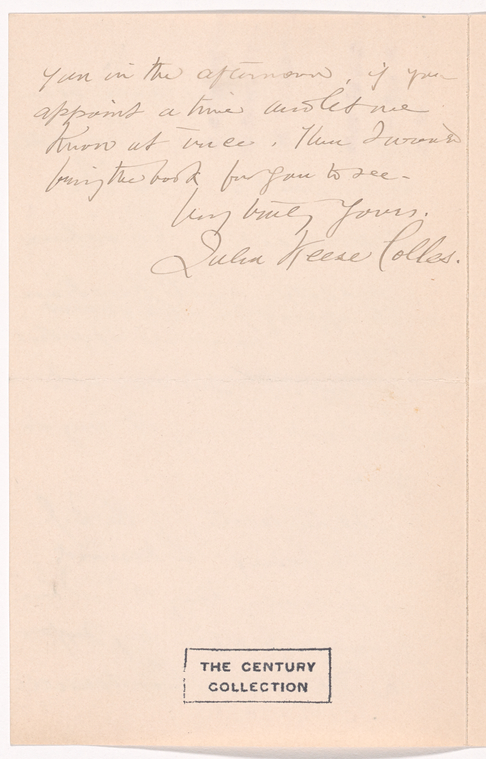 you in the afternoon, if you
appoint a time and let me
know at once. Then I would
bring the book for you to see—
Very truly Yours.
Julia Keese Colles.
THE CENTURY
COLLECTION